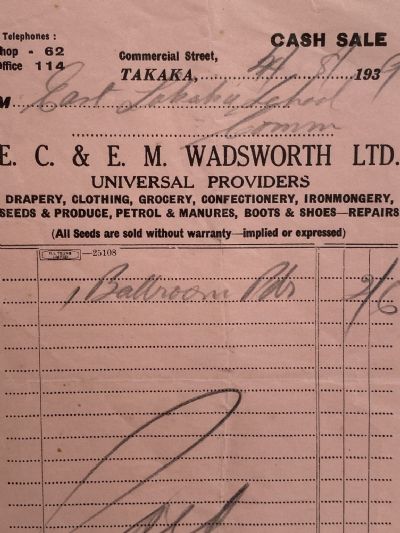 Telephones :
hop - 62
Office 114
CASH SALE
Commercial Street,
TAKAKA, 24/8/1939
M East Takaka School
Comm
E. C. & E. M. WADSWORTH LTD.
UNIVERSAL PROVIDERS
DRAPERY, CLOTHING, GROCERY, CONFECTIONERY, IRONMONGERY,
SEEDS & PRODUCE, PETROL & MANURES, BOOTS & SHOES—REPAIRS
(All Seeds are sold without warranty—implied or expressed)
—25108
1 Ballroom Pdr 2/6